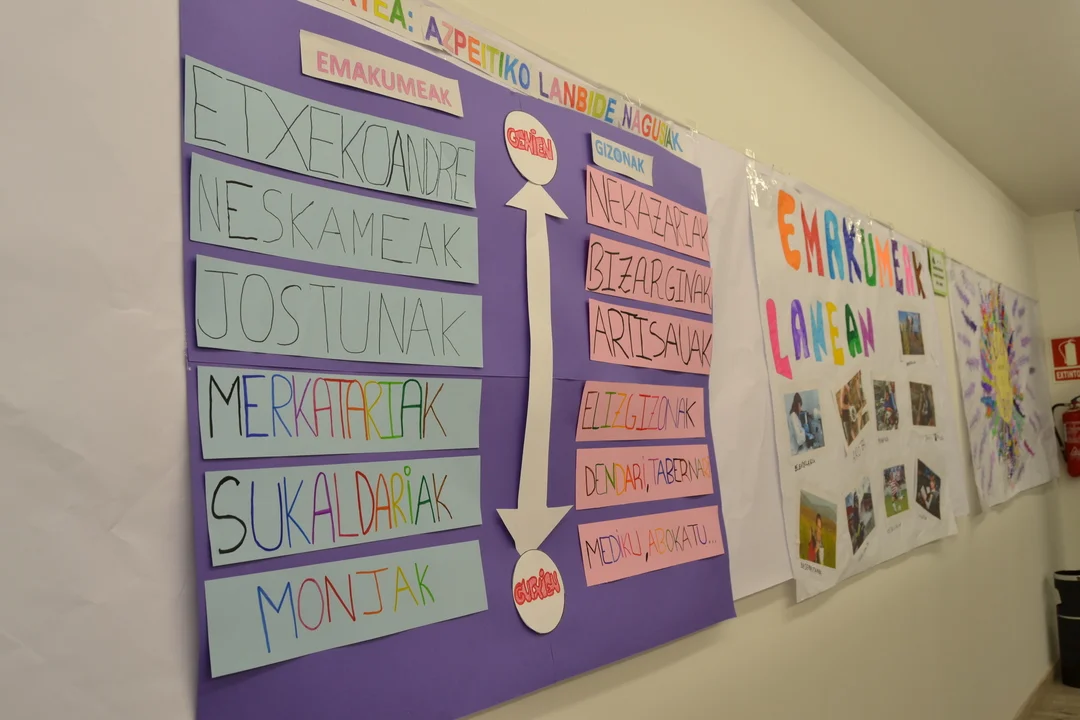 TEA: AZPEITIKO LANBIDE NAGUSIAK
EMAKUMEAK
ETXEKOANDRE
NESKAMEAK
JOSTUNAK
MERKATARIAK
SUKALDARIAK
MONJAK
GEHIEN
GUTXIEN
GIZONAK
NEKAZARIAK
BIZARGINAK
ARTISAUAK
ELIZGIZONAK
DENDARI, TABERNARI
MEDIKU, ABOKATU...
EMAKUMEAK
LANEAN
EXTINTOR